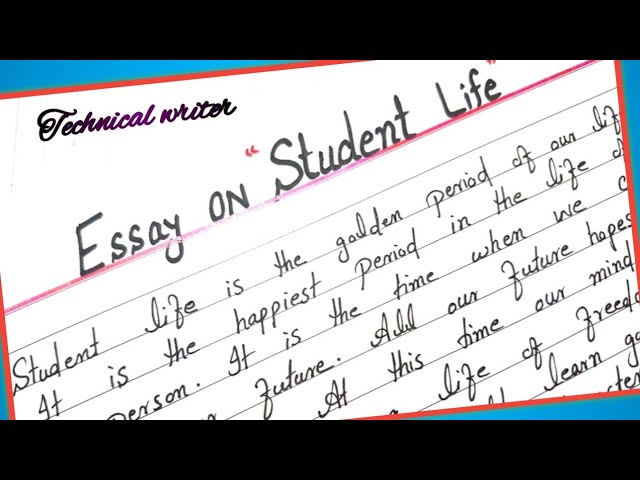 Technical writer
Essay on "Student Life"
Student life is the golden period of our life
It is the happiest period in the life of
person. It is the time when we
future. All our future hopes
At this time our mind
life of freedo
learn